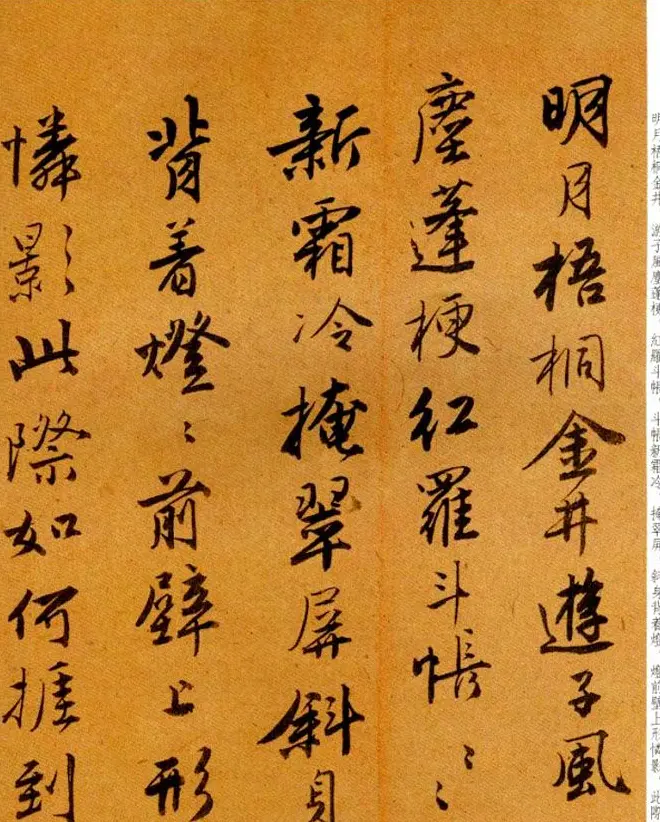 明月梧桐金井遊子風
塵蓬梗紅羅斗帳〻〻
新霜冷掩翠屏斜身
背着燈〻前壁上形
憐影〻此際如何捱到
明月梧桐金井 游子風塵蓬梗 紅羅斗帳 斗帳新霜冷 掩翠屏 斜身背着燈 燈前壁上形憐影 此際